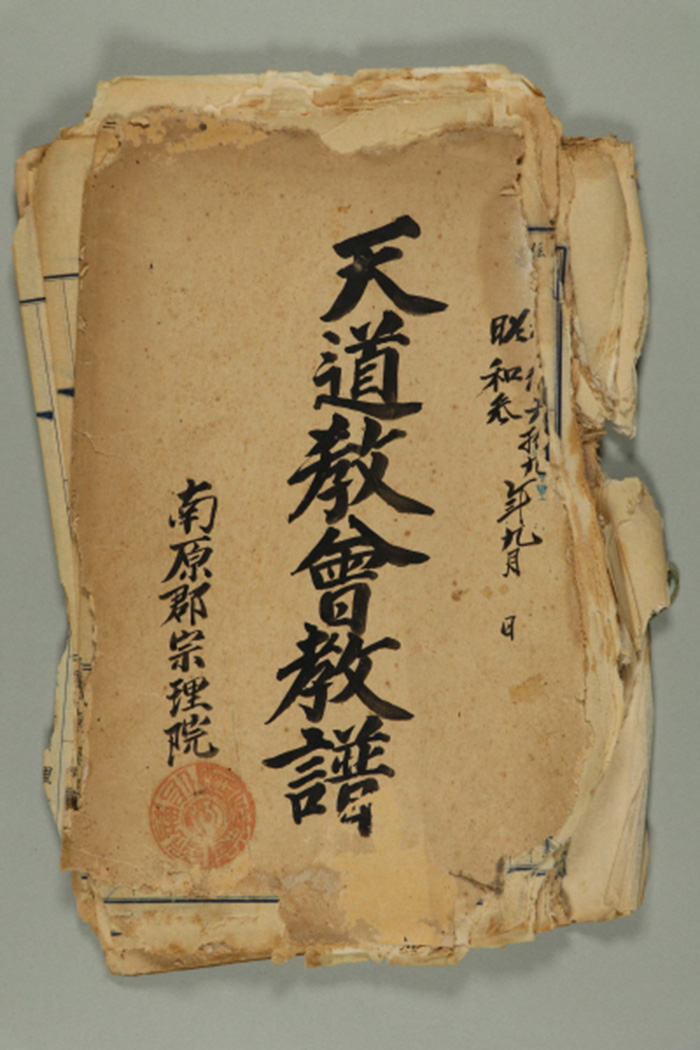 昭和參
年九月 日
天道教會教譜
南原郡宗理院